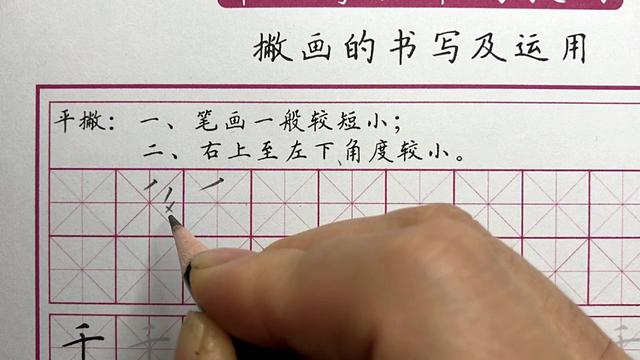 撇画的书写及运用
平撇：一、笔画一般较短小；
二、右上至左下、角度较小。
千 千